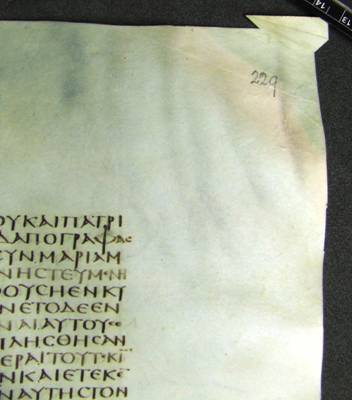 13
14
229
ΟΥΚΑΙΠΑΤΡΙ
ΔΑΠΟΓΡΑΨΑϹ
ϹΥΝΜΑΡΙΑΜ
ΝΗϹΤΕΥΜ·ΝΗ
ΟΥϹΗΕΝΚΥ
ΝΕΤΟΔΕΕΝ
ΝΑΙΑΥΤΟΥ
ΠΛΗϹΘΗϹΑΝ
ΕΡΑΙΤΟΥΤ·ΚΙ
ΝΚΑΙΕΤΕΚΕ
ΝΑΥΤΗϹΤΟΝ